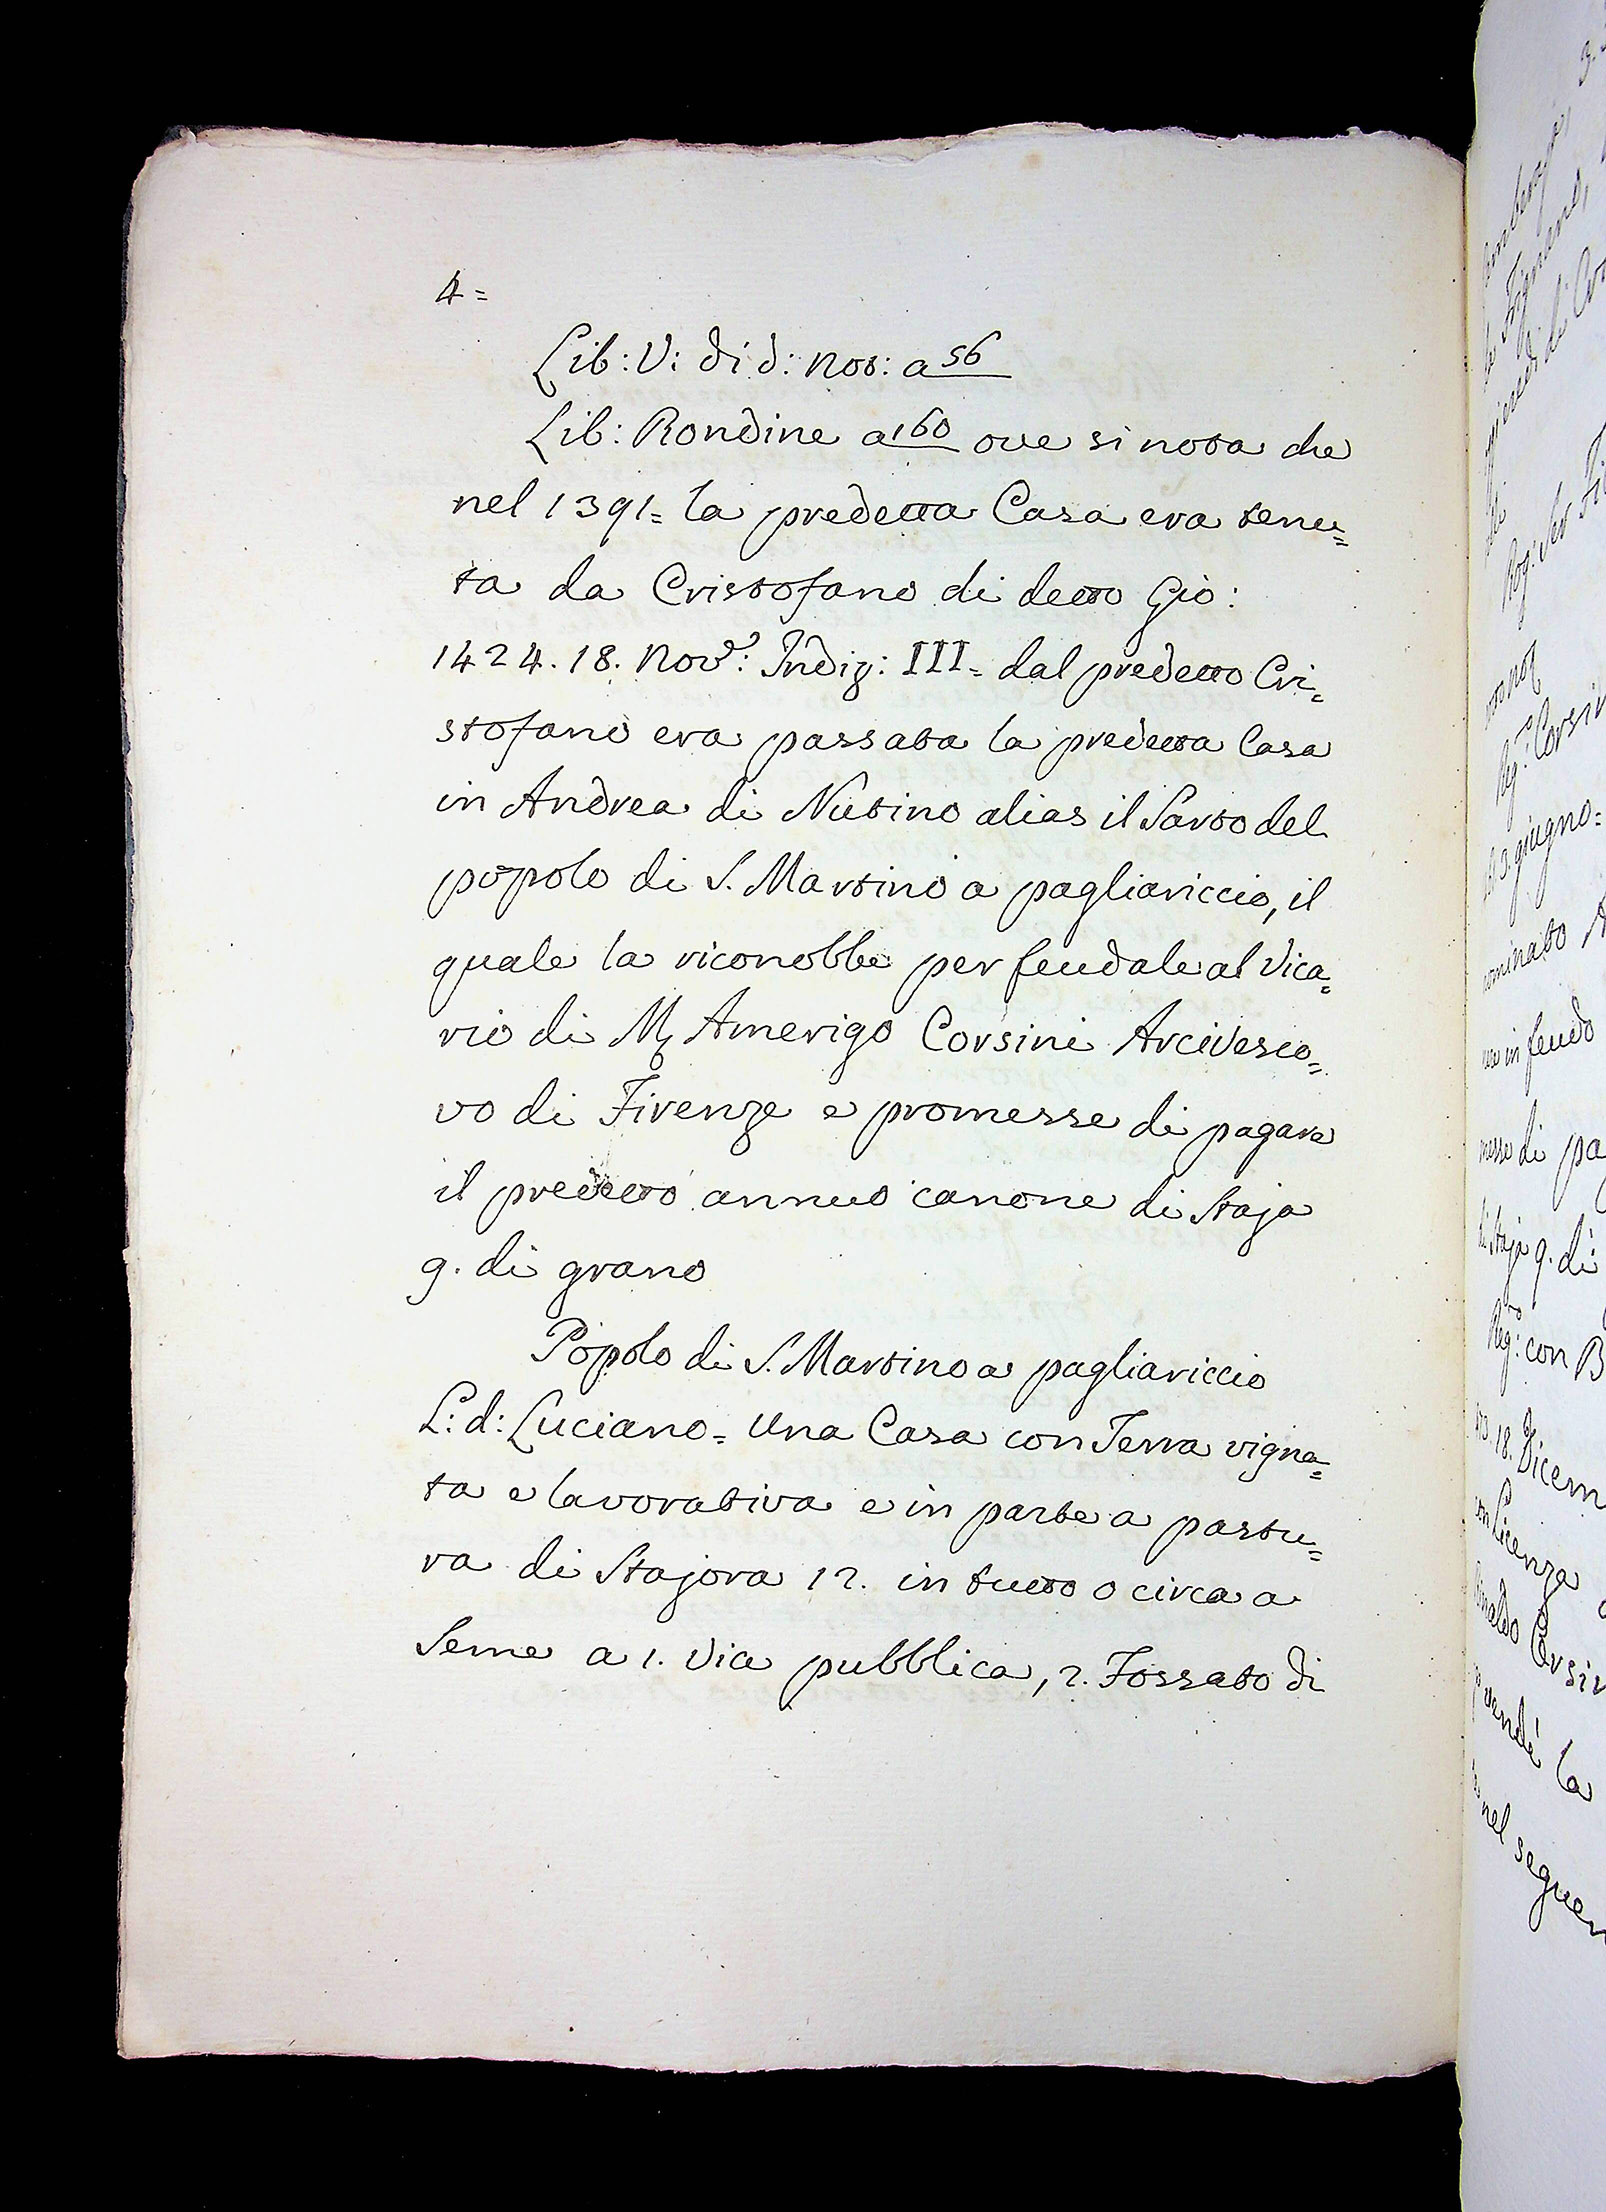 4=
Lib: V: di d: not: a 56
Lib: Rondine a 160 ove si nota che
nel 1391= la predetta Casa era tenu=
ta da Cristofano di detto Gio:
1424. 18. Nov.e: Indiz: III= dal predetto Cri=
stofano era passata la predetta Casa
in Andrea di Nutino alias il Sarto del
popolo di S. Martino a pagliariccio, il
quale la riconobbe per feudale al Vica=
rio di M. Amerigo Corsini Arcivesco=
vo di Firenze e promesse di pagare
il predetto annuo canone di Staja
9. di grano
Popolo di S. Martino a pagliariccio
L: d: Luciano= Una Casa con Terra vigna=
ta e lavorativa e in parte a pastu=
ra di Stajora 12. in tutto o circa a
Seme a 1. Via pubblica, 2. Fossato di
Rog: Ser
Corsin
3. giugno=
ominato A
in feudo
messe di pa
Staja 9. di
Reg.to: con B
18. Dicem
con Licenza
Corsin
vendè la
nel seguen